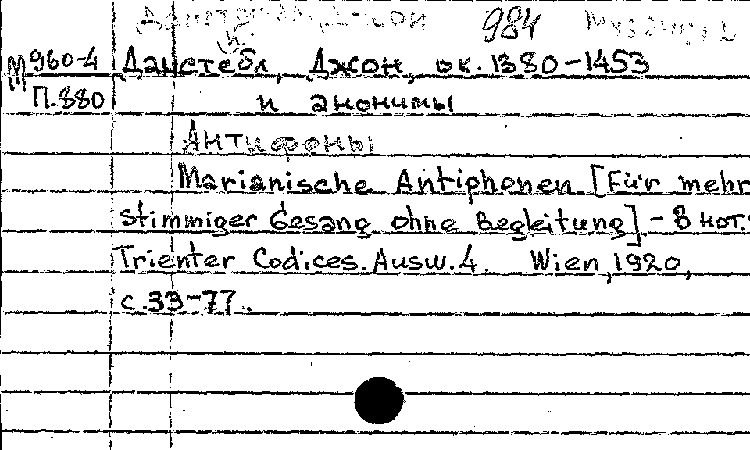 984
М 960-4 Данстебл, Джон, ок. 1380-1453
П.880 и анонимы
Антифоны
Marianische Antiphonen [Für mehr
stimmiger Gesang ohne Begleitung] - В нот.:
Trienter Codices. Ausw. 4. Wien, 1920,
с. 33-77.